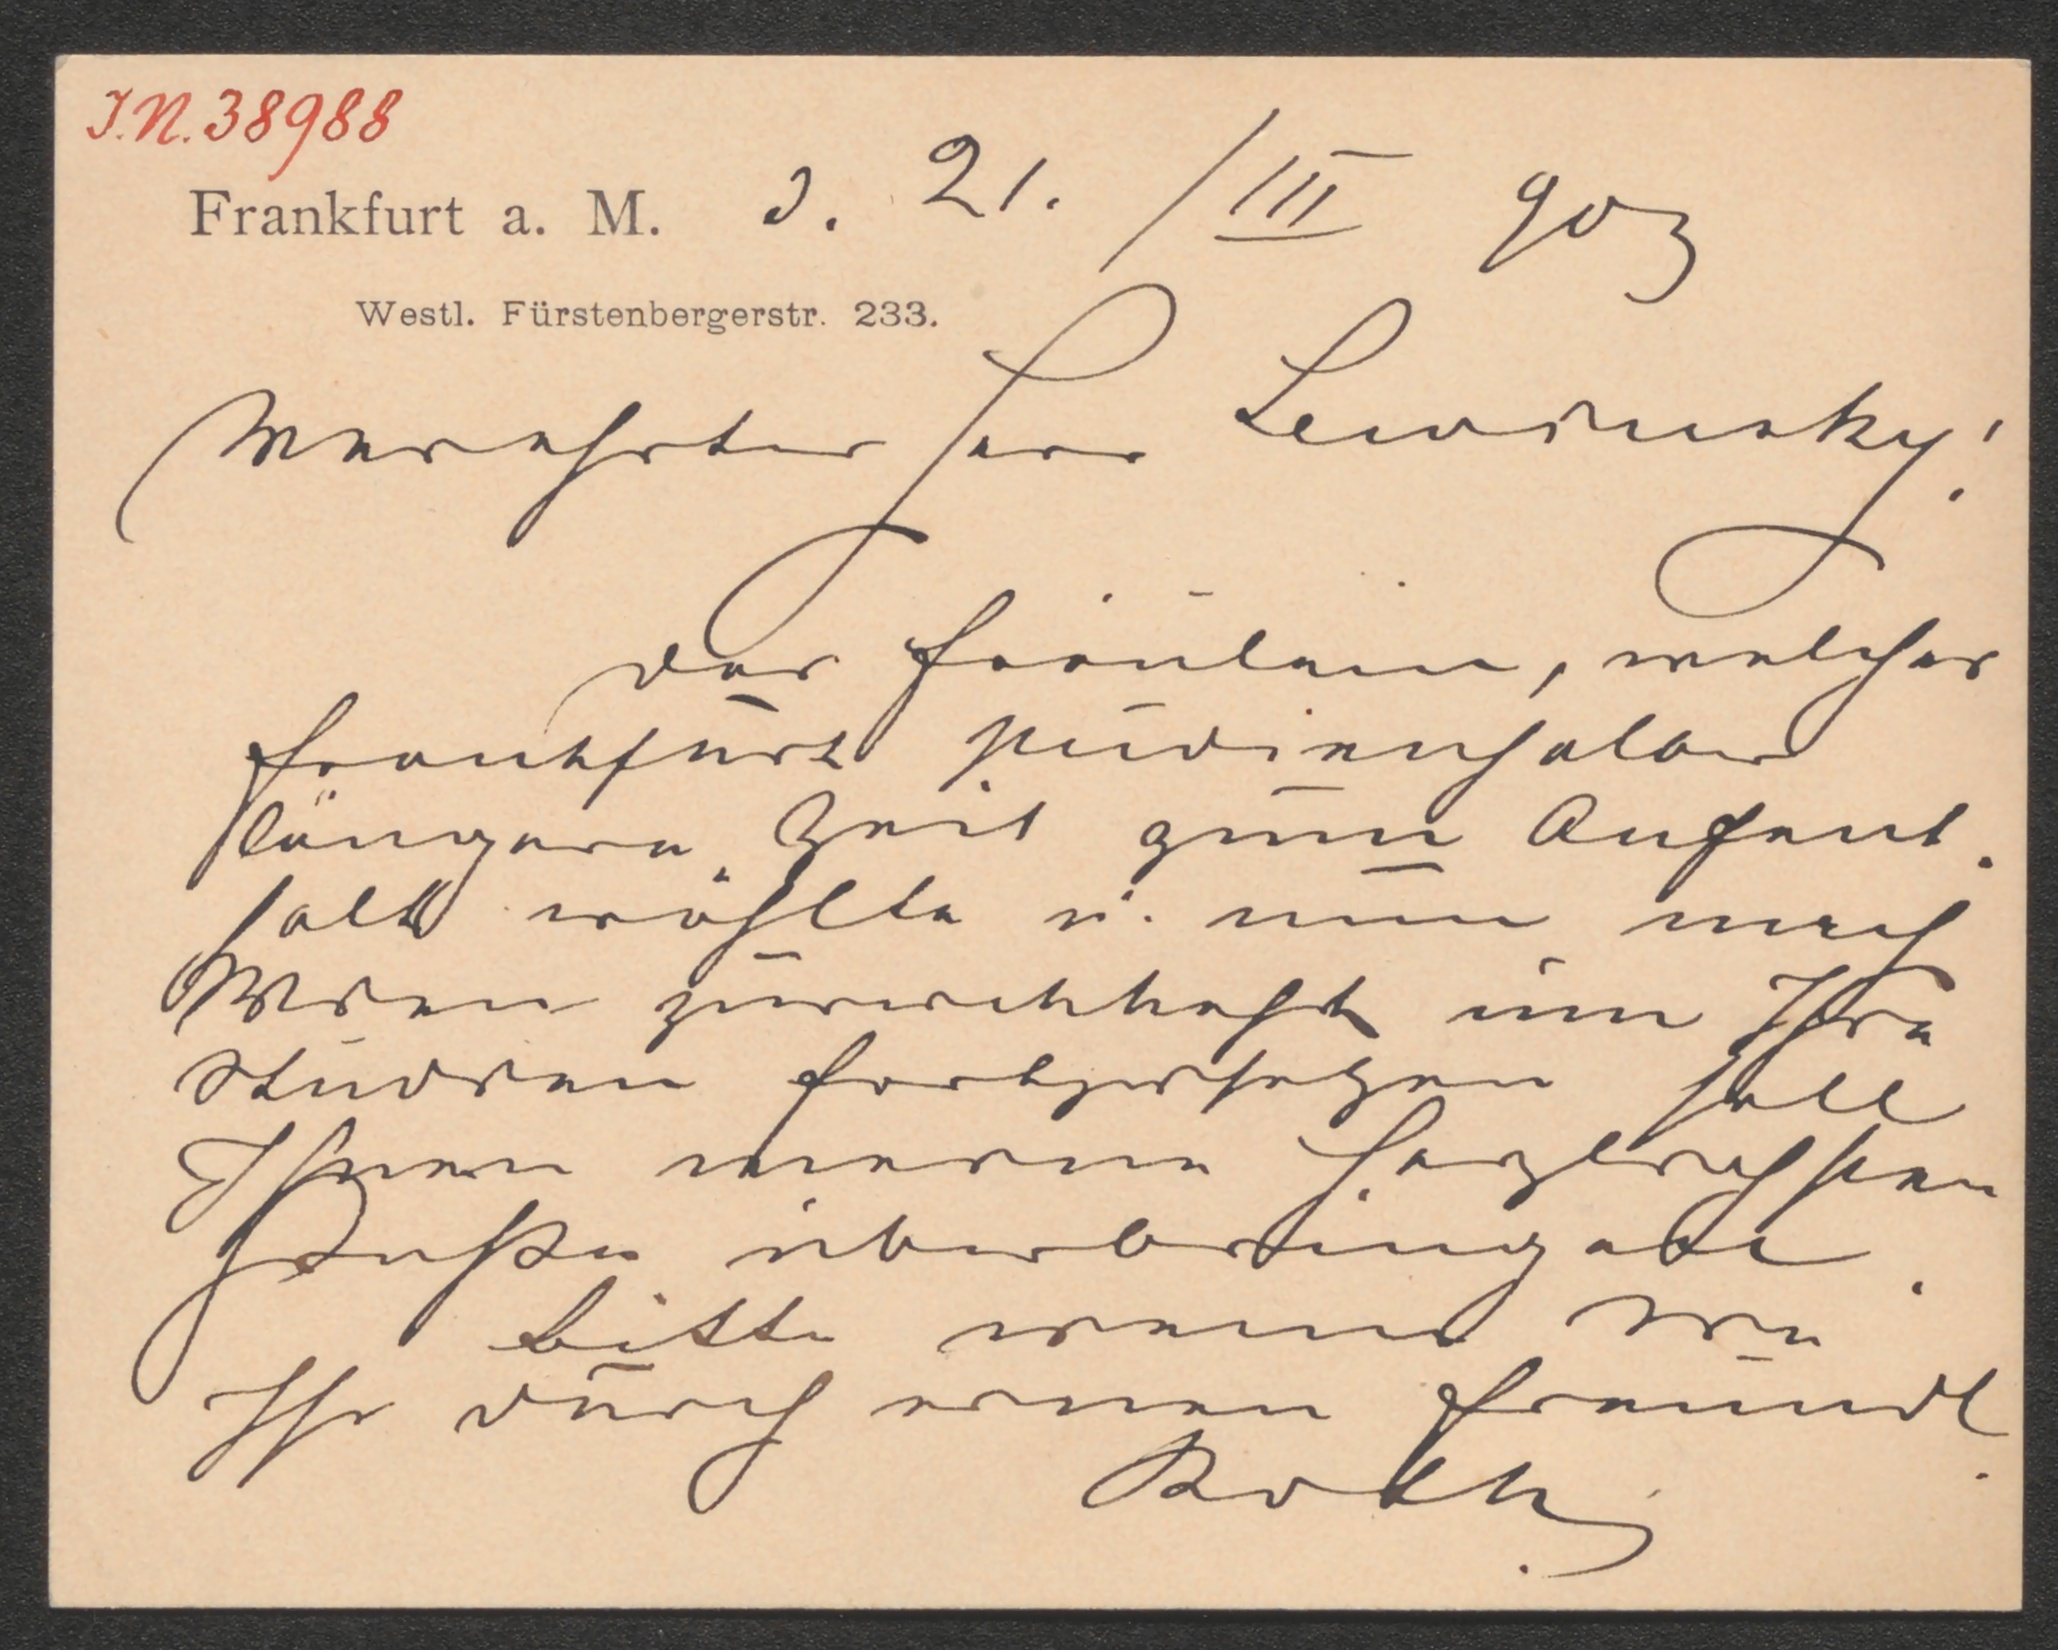 I.N. 38988
Frankfurt a. M. d. 21. /III 903
Westl. Fürstenbergerstr. 233.
Verehrter Herr Lewinsky!
Das Fräulein, welches
Frankfurt studienhalber
längere Zeit zum Aufent-
halt wählte u. nun nach
Wien zurückkehrt um Ihre
Studien fortzusetzen soll
Ihnen meine herzlichsten
Grüße überbringen.
Bitte wenn
Ihr durch einen freundl.